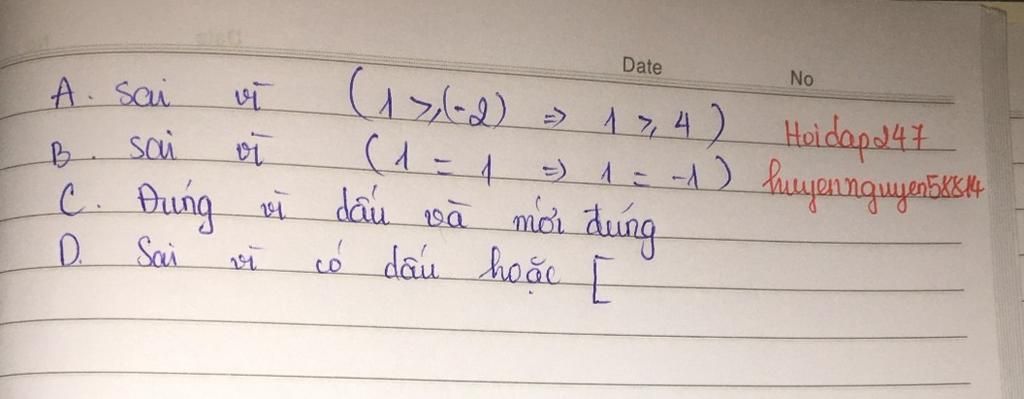 Date No
A. sai vì (1 ⩾ (-2) ⇒ 1 ⩾ 4) Hoidap247
B. sai vì (1 = 1 ⇒ 1 = -1) huyennguyen58814
C. Đúng vì dấu và mới đúng
D. Sai vì có dấu hoặc [